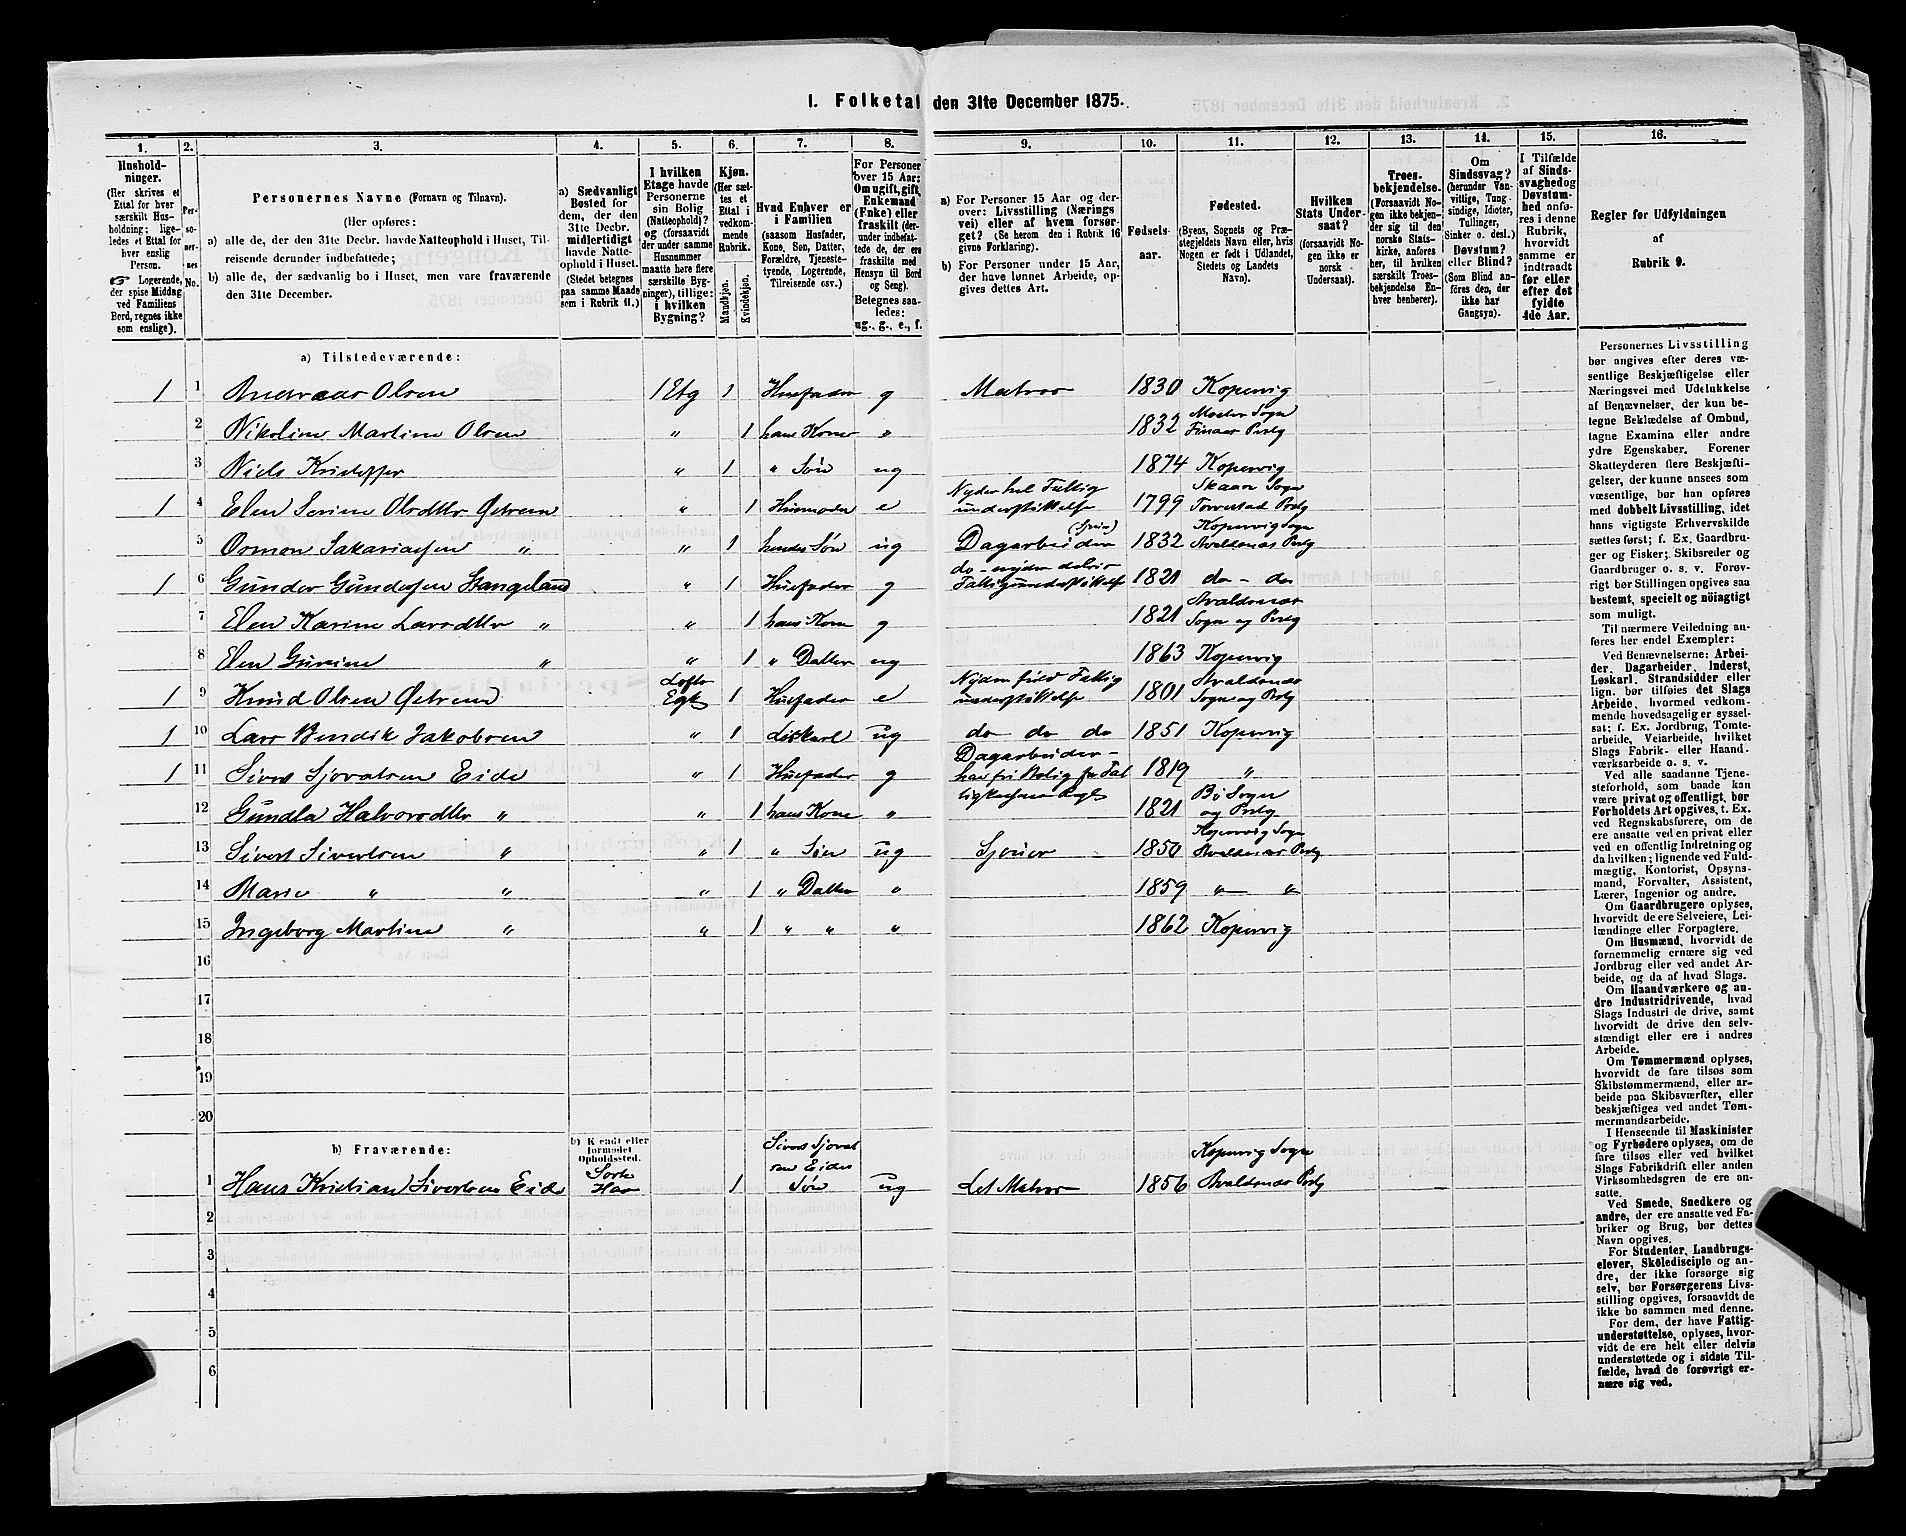 1. Folketal den 31te December 1875.
1. Husholdninger. (Her skrives et Ettal for hver særskilt Husholdning; ligeledes et Ettal for hver enslig Person. ☞ Logerende, der spise Middag ved Familiens Bord, regnes ikke som enslige).
2. Personernes No.
3. Personernes Navne (Fornavn og Tilnavn).
(Her opføres:
a) alle de, der den 31te Decbr. havde Natteophold i Huset, Tilreisende derunder indbefattede;
b) alle de, der sædvanlig bo i Huset, men vare fraværende den 31te December.
4. a) Sædvanligt Bosted for dem, der den 31te Decbr. midlertidigt havde Natteophold i Huset. (Stedet betegnes paa samme Maade som i Rubrik 11.)
5. I hvilken Etage havde Personerne sin Bolig (Natteophold)? og (forsaavidt der under samme Husnummer maatte høre flere særskilte Bygninger), tillige: i hvilken Bygning?
6. Kjøn. (Her sættes et Ettal i vedkommende Rubrik. Mandkjøn. Kvindekjøn.
7. Hvad Enhver er i Familien (saasom Husfader, Kone, Søn, Datter, Forældre, Tjenestetyende, Logerende, Tilreisende osv.)
8. For Personer over 15 Aar: Om ugift, gift, Enkemand (Enke) eller fraskilt (derunder indbefattede de, der ere fraskilte med Hensyn til Bord og Seng). Betegnes saaledes: ug., g., e., f.
9. a) For Personer 15 Aar og derover: Livsstilling (Næringsvei) eller af hvem forsørget? (Se herom den i Rubrik 16 givne Forklaring).
b) For Personer under 15 Aar, der have lønnet Arbeide, opgives dettes Art.
10. Fødselsaar.
11. Fødested. (Byens, Sognets og Præstegjeldets Navn eller, hvis Nogen er født i Udlandet, Stedets og Landets Navn).
12. Hvilken Stats Undersaat? (forsaavidt Nogen ikke er norsk Undersaat).
13. Troesbekjendelse. (Forsaavidt Nogen ikke bekjender sig til den norske Statskirke, anføres her, til hvilken særskilt Troesbekjendelse Enhver henhører).
14. Om Sindssvag? (herunder Vanvittige, Tungsindige, Idioter, Tullinger, Sinker o. desl.) Døvstum? eller Blind? (Som Blind anføres den, der ikke har Gangsyn).
15. I Tilfælde af Sindssvaghed og Døvstumhed anføres i denne Rubrik, hvorvidt samme er indtraadt før eller efter det fyldte 4de Aar.
16. Regler for Udfyldningen af Rubrik 9.
a) Tilstedeværende:
1 1 Andreas Olsen 1 Etg 1 Husfader g Matros 1830 Kopervig
2 Nikoline Martine Olsen " 1 hans Kone " 1832 Moster Sogn Finaas Prstg
3 Niels Kristoffer " 1 " Søn ug 1874 Kopervig
1 4 Elen Serine Olsdttr Østrem " 1 Husmoder e Nyder hel Fattigunderstøttelse 1799 Skaare Sogn Torvestad Prstg
5 Osmon Sakariassen " " 1 hendes Søn ug Dagarbeider 1832 Kopervig Sogn Avaldsnæs Prstg
1 6 Gunder Gundersen Stangeland " 1 Husfader g do - nyder delvis Fattigunderstøttelse 1821 do - do
7 Elen Karine Larsdttr " " 1 hans Kone g 1821 Avaldsnæs Sogn og Prstg
8 Elen Gurine " " 1 " Datter ug 1863 Kopervig
1 9 Knud Olsen Østrem Lofts Etg 1 Husfader e Nyder fuld Fattigunderstøttelse 1801 Avaldsnæs Sogn og Prstg
1 10 Lars Bendik Jakobsen " 1 Løskarl ug do do do 1851 Kopervig
1 11 Sivert Sjovatsen Eide " 1 Husfader g Dagarbeider - har fri Bolig for 1819 "
12 Gundla Halvorsdttr " " 1 hans Kone " 1821 Bø Sogn og Prstg
13 Sivert Sivertsen " " 1 " Søn ug Sjouer 1850 Kopervig Sogn Avaldsnæs Prstg
14 Marie " " " 1 " Datter " 1859 " "
15 Ingeborg Martine " " 1 " " " 1862 Kopervig
16
17
18
19
20
b) Fraværende: b) Kendt eller formodet Opholdssted.
1 Hans Kristian Sivertsen Eide Sorte Hav 1 Sivert Sjovatsen Eides Søn ug Let Matros 1856 Kopervig Sogn Avaldsnæs Prstg
2
3
4
5
6
Personernes Livsstilling bør angives efter deres væsentlige Beskjæftigelse eller Næringsvei med Udelukkelse af Benævnelser, der kun betegne Beklædelse af Ombud, tagne Examina eller andre ydre Egenskaber. Forener Skatteyderen flere Beskjæftigelser, der kunne ansees som væsentlige, bør han opføres med dobbelt Livsstilling, idet hans vigtigste Erhvervskilde sættes først; f. Ex. Gaardbruger og Fisker; Skibsreder og Gaardbruger o. s. v. Forøvrigt bør Stillingen opgives saa bestemt, specielt og nöiagtigt som muligt.
Til nærmere Veiledning anføres her endel Exempler:
Ved Benævnelserne: Arbeider, Dagarbeider, Inderst, Løskarl, Strandsidder eller lign. bør tilføies det Slags Arbeide, hvormed vedkommende hovedsagelig er sysselsat; f. Ex. Jordbrug, Tomtearbeide, Veiarbeide, hvilket Slags Fabrik- eller Haandværksarbeide o. s. v.
Ved alle saadanne Tjenesteforhold, som baade kan være privat og offentligt, bør Forholdets Art opgives, t. Ex. ved Regnskabsførere, om de ere ansatte ved en privat eller ved en offentlig Indretning og da hvilken; lignende ved Fuldmægtig, Kontorist, Opsynsmand, Forvalter, Assistent, Lærer, Ingeniør og andre.
Om Gaardbrugere oplyses, hvorvidt de ere Selveiere, Leilændinge eller Forpagtere.
Om Husmænd, hvorvidt de fornemmelig ernære sig ved Jordbrug eller ved andet Arbeide, og da af hvad Slags.
Om Haandværkere og andre Industridrivende, hvad Slags Industri de drive, samt hvorvidt de drive den selvstændigt eller ere i andres Arbeide.
Om Tømmermænd oplyses, hvorvidt de fare tilsøs som Skibstømmermænd, eller arbeide paa Skibsværfter, eller beskjæftiges ved andet Tømmermandsarbeide.
I Henseende til Maskinister og Fyrbødere oplyses, om de fare tilsøs eller ved hvilket Slags Fabrikdrift eller anden Virksomhedsgren de ere ansatte.
Ved Smede, Snedkere og andre, der ere ansatte ved Fabriker og Brug, bør dettes Navn opgives.
For Studenter, Landbrugselever, Skoledisciple og andre, der ikke forsørge sig selv, bør Forsørgerens Livsstilling opgives, forsaavidt de ikke bo sammen med denne.
For dem, der have Fattigunderstøttelse, oplyses, hvorvidt de ere helt eller delvis understøttede og i sidste Tilfælde, hvad de forøvrigt ernære sig ved.